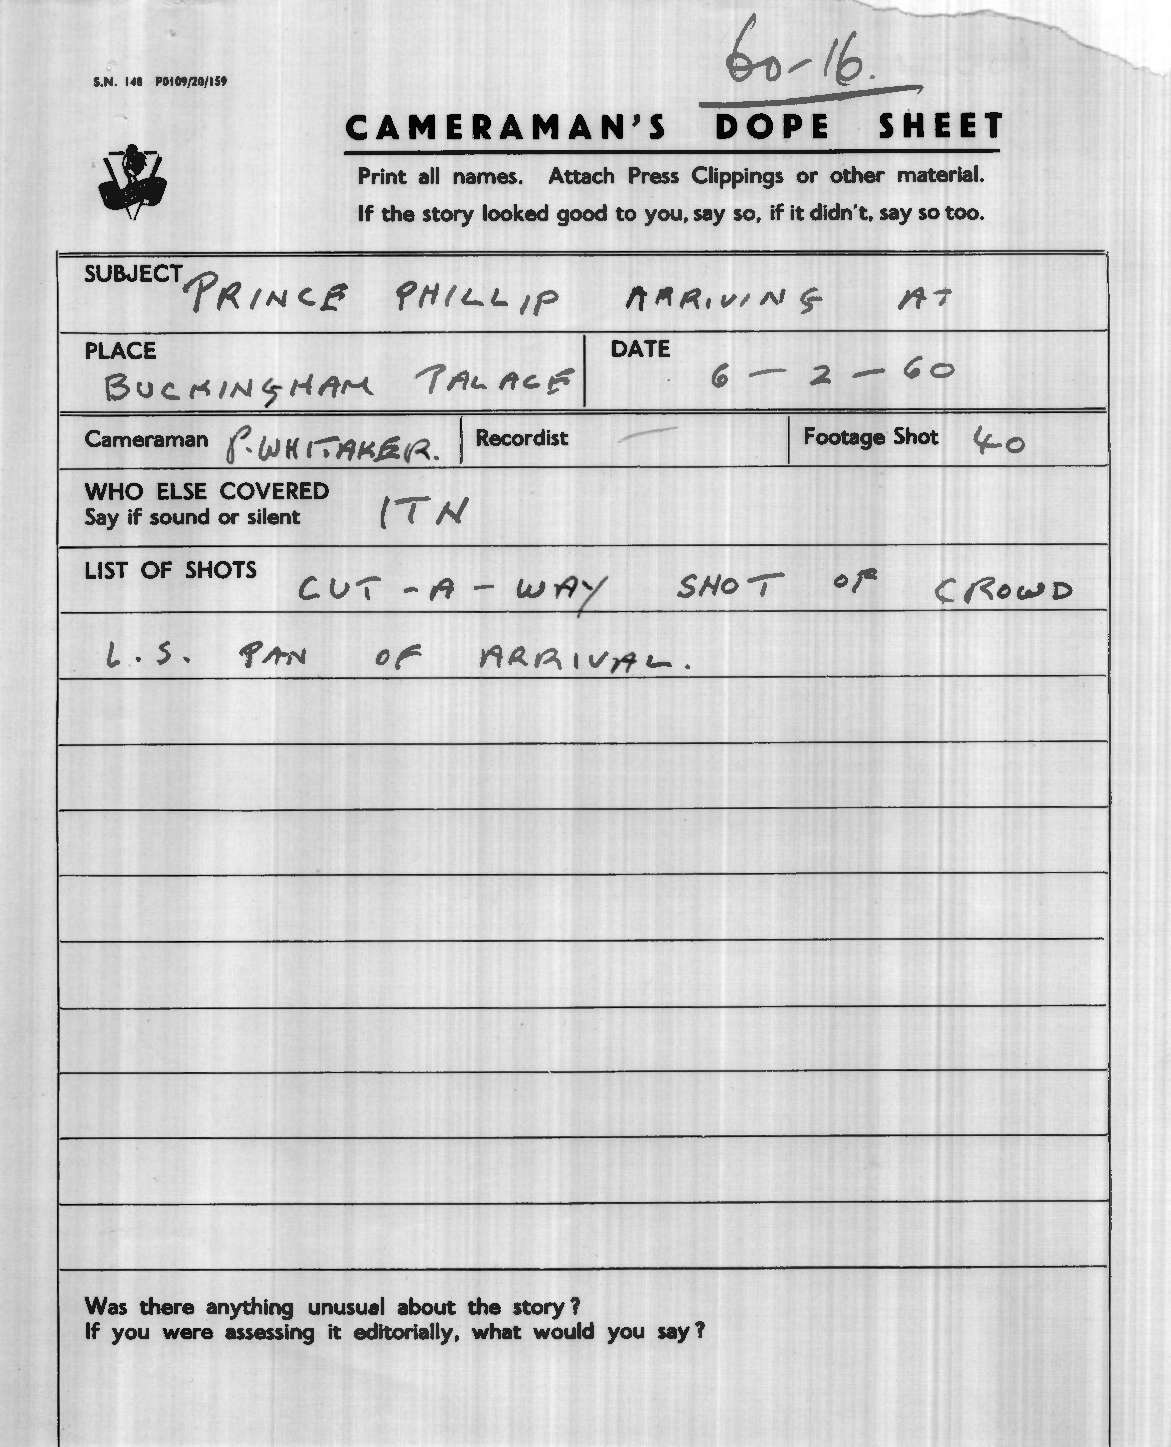 60-16.
S.N. 148 P0109/20/159
CAMERAMAN'S DOPE SHEET
Print all names. Attach Press Clippings or other material.
If the story looked good to you, say so, if it didn't, say so too.
SUBJECT PRINCE PHILLIP ARRIVING AT
PLACE BUCKINGHAM PALACE DATE 6-2-60
Cameraman P. WHITAKER. Recordist — Footage Shot 40
WHO ELSE COVERED
Say if sound or silent ITN
LIST OF SHOTS CUT-A-WAY SHOT OF CROWD
L.S. PAN OF ARRIVAL.
Was there anything unusual about the story?
If you were assessing it editorially, what would you say?